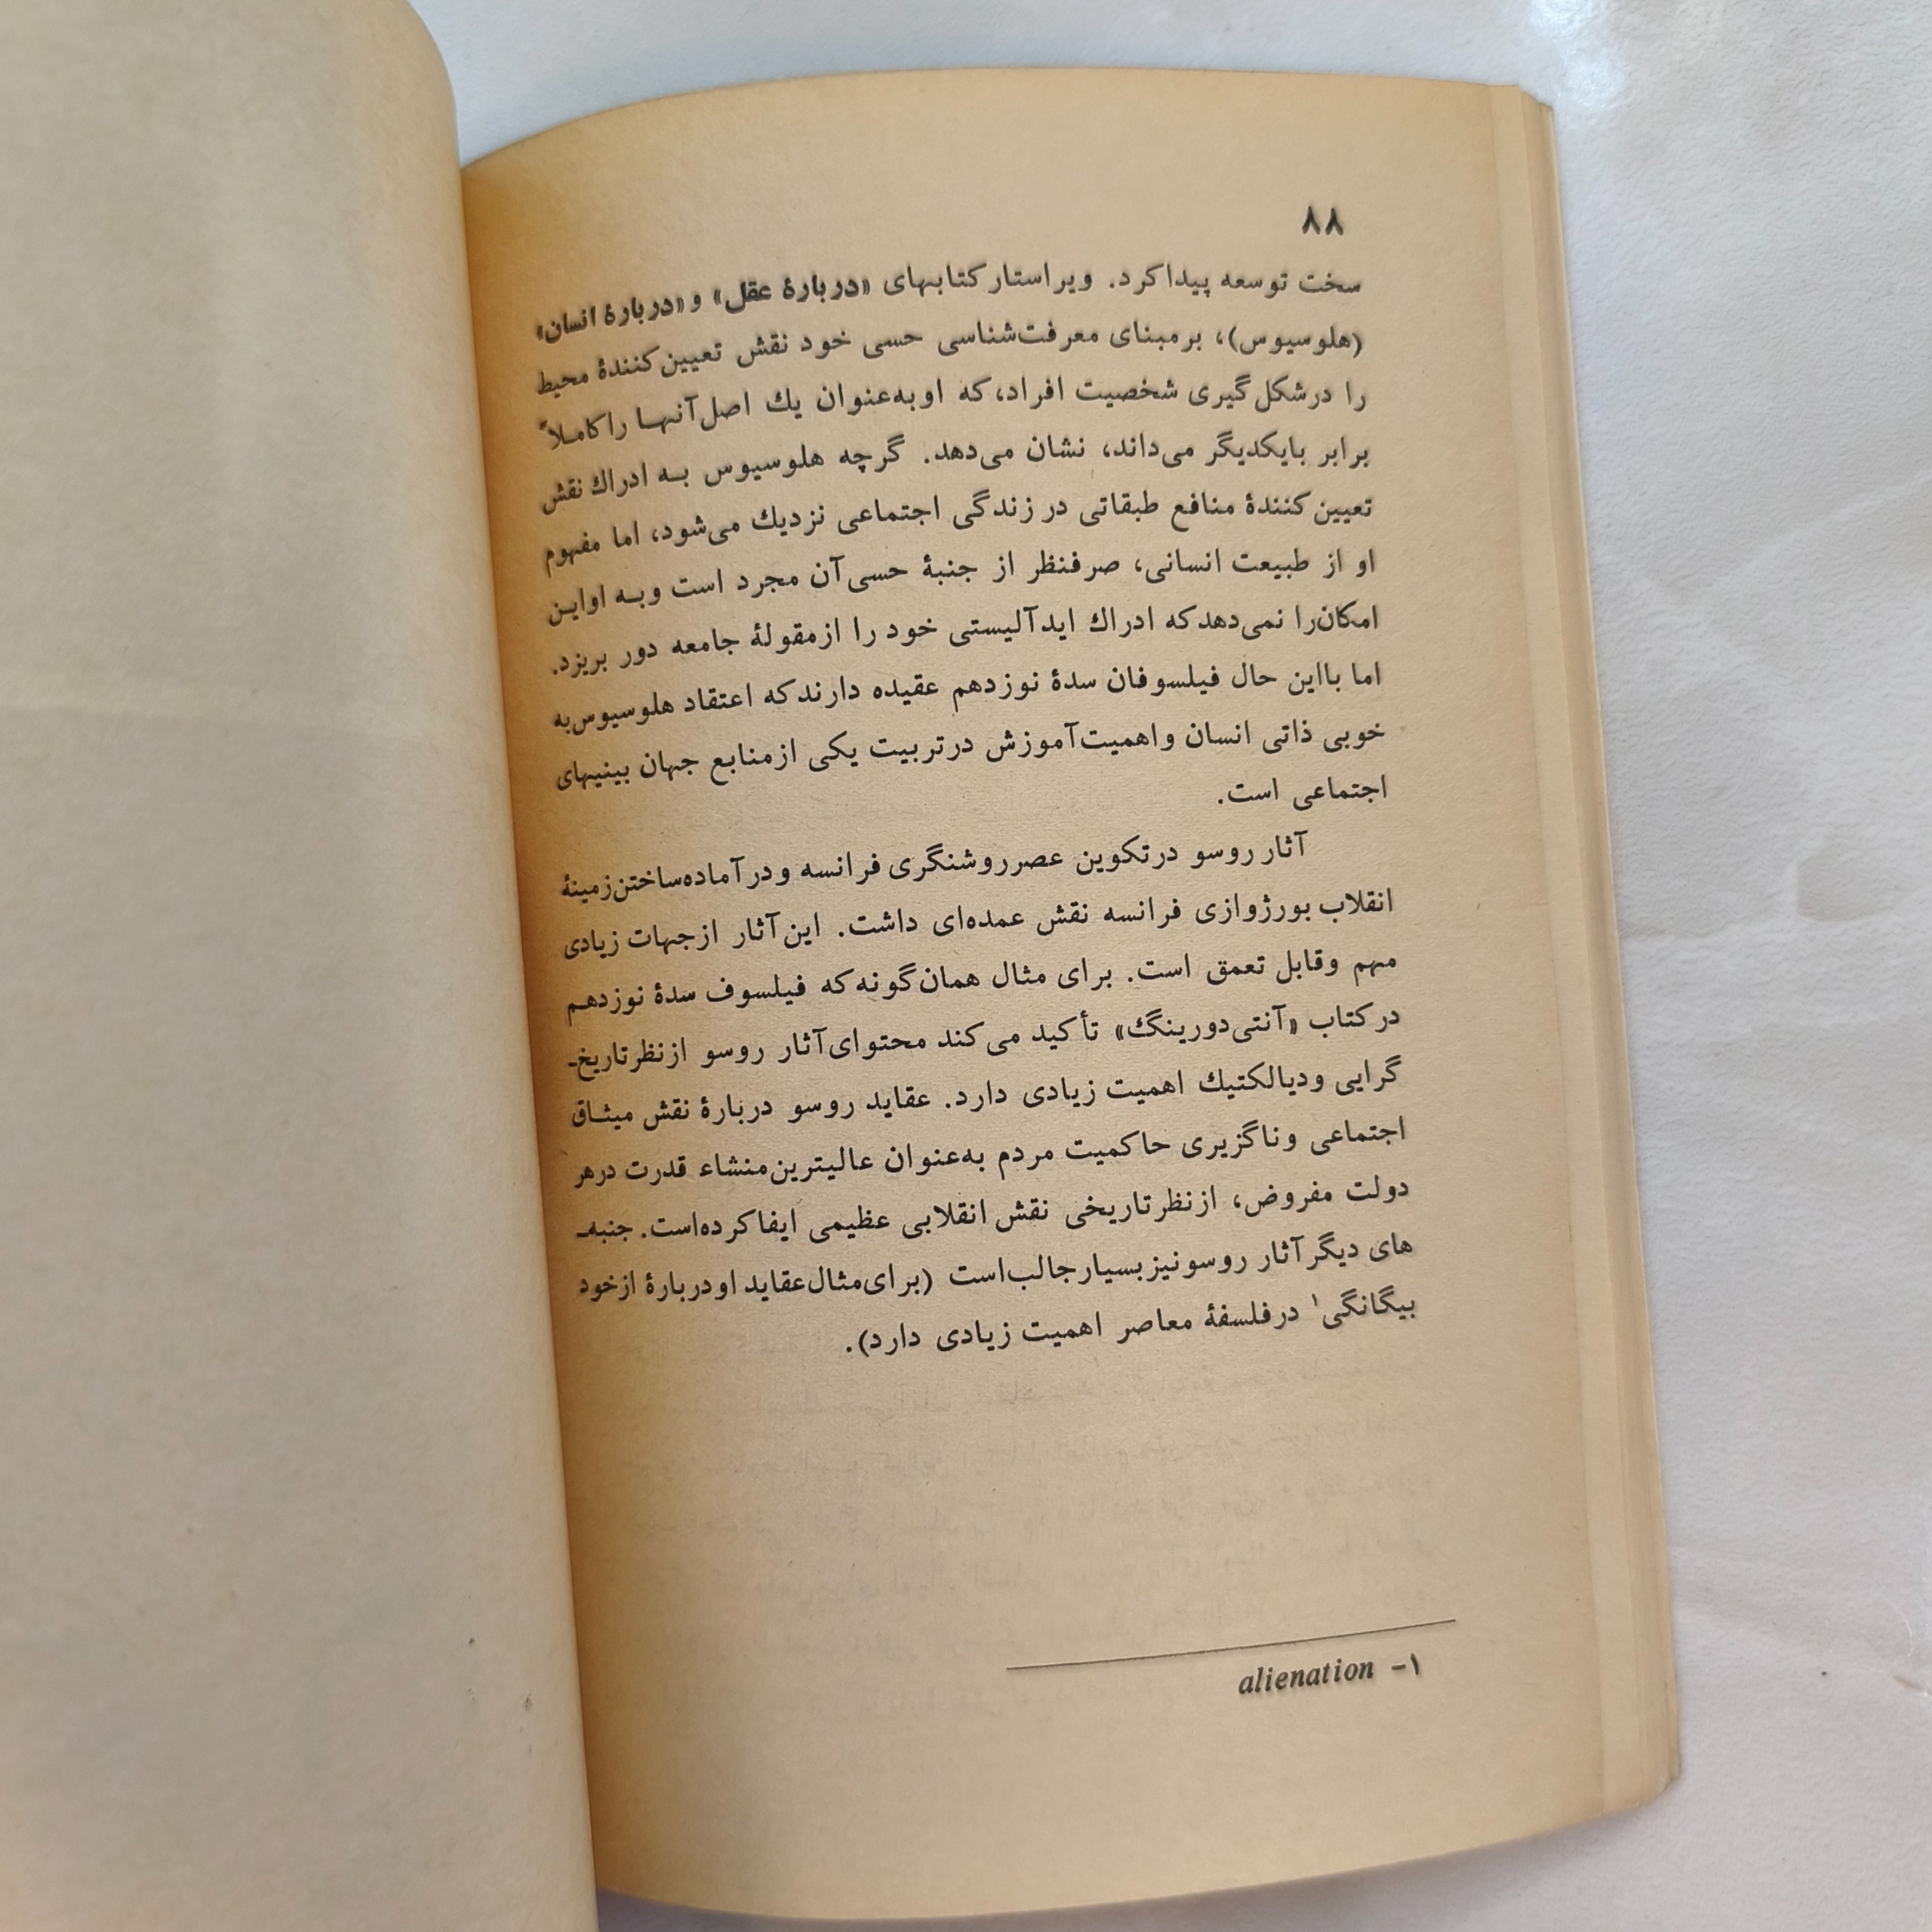 ۸۸
سخت توسعه پیدا کرد. ویراستار کتابهای «دربارهٔ عقل» و «دربارهٔ انسان»
(هلوسیوس)، برمبنای معرفت‌شناسی حسی خود نقش تعیین کنندهٔ محیط
را درشکل گیری شخصیت افراد، که او به‌عنوان یك اصل آنهـا را کاملاً
برابر بایکدیگر می‌داند، نشان می‌دهد. گرچه هلوسیوس بـه ادراك نقش
تعیین کنندهٔ منافع طبقاتی در زندگی اجتماعی نزدیك می‌شود، اما مفهوم
او از طبیعت انسانی، صرفنظر از جنبهٔ حسی آن مجرد است وبـه اواین
امکان‌را نمی‌دهد که ادراك ایدآلیستی خود را ازمقولهٔ جامعه دور بریزد.
اما بااین حال فیلسوفان سدهٔ نوزدهم عقیده دارند که اعتقاد هلوسیوس‌به
خوبی ذاتی انسان واهمیت آموزش درتربیت یکی ازمنابع جهان بینیهای
اجتماعی است.
آثار روسو درتکوین عصرروشنگری فرانسه ودرآماده‌ساختن‌زمینهٔ
انقلاب بورژوازی فرانسه نقش عمده‌ای داشت. این آثار ازجهات زیادی
مهم وقابل تعمق است. برای مثال همان گونه که فیلسوف سدهٔ نوزدهـم
در کتاب «آنتی‌دورینگ» تأکید می کند محتوای آثار روسو ازنظرتاریخ‌ـ
گرایی ودیالکتیك اهمیت زیادی دارد. عقاید روسو دربارهٔ نقش میثـاق
اجتماعی وناگزیری حاکمیت مردم به‌عنوان عالیترین‌منشاء قدرت درهر
دولت مفروض، ازنظرتاریخی نقش انقلابی عظیمی ایفا کرده‌است. جنبه‌ـ
های دیگر آثار روسونیزبسیارجالب‌است (برای‌مثال‌عقاید اودربارهٔ ازخود
بیگانگی۱ درفلسفهٔ معاصر اهمیت زیادی دارد).
۱– alienation